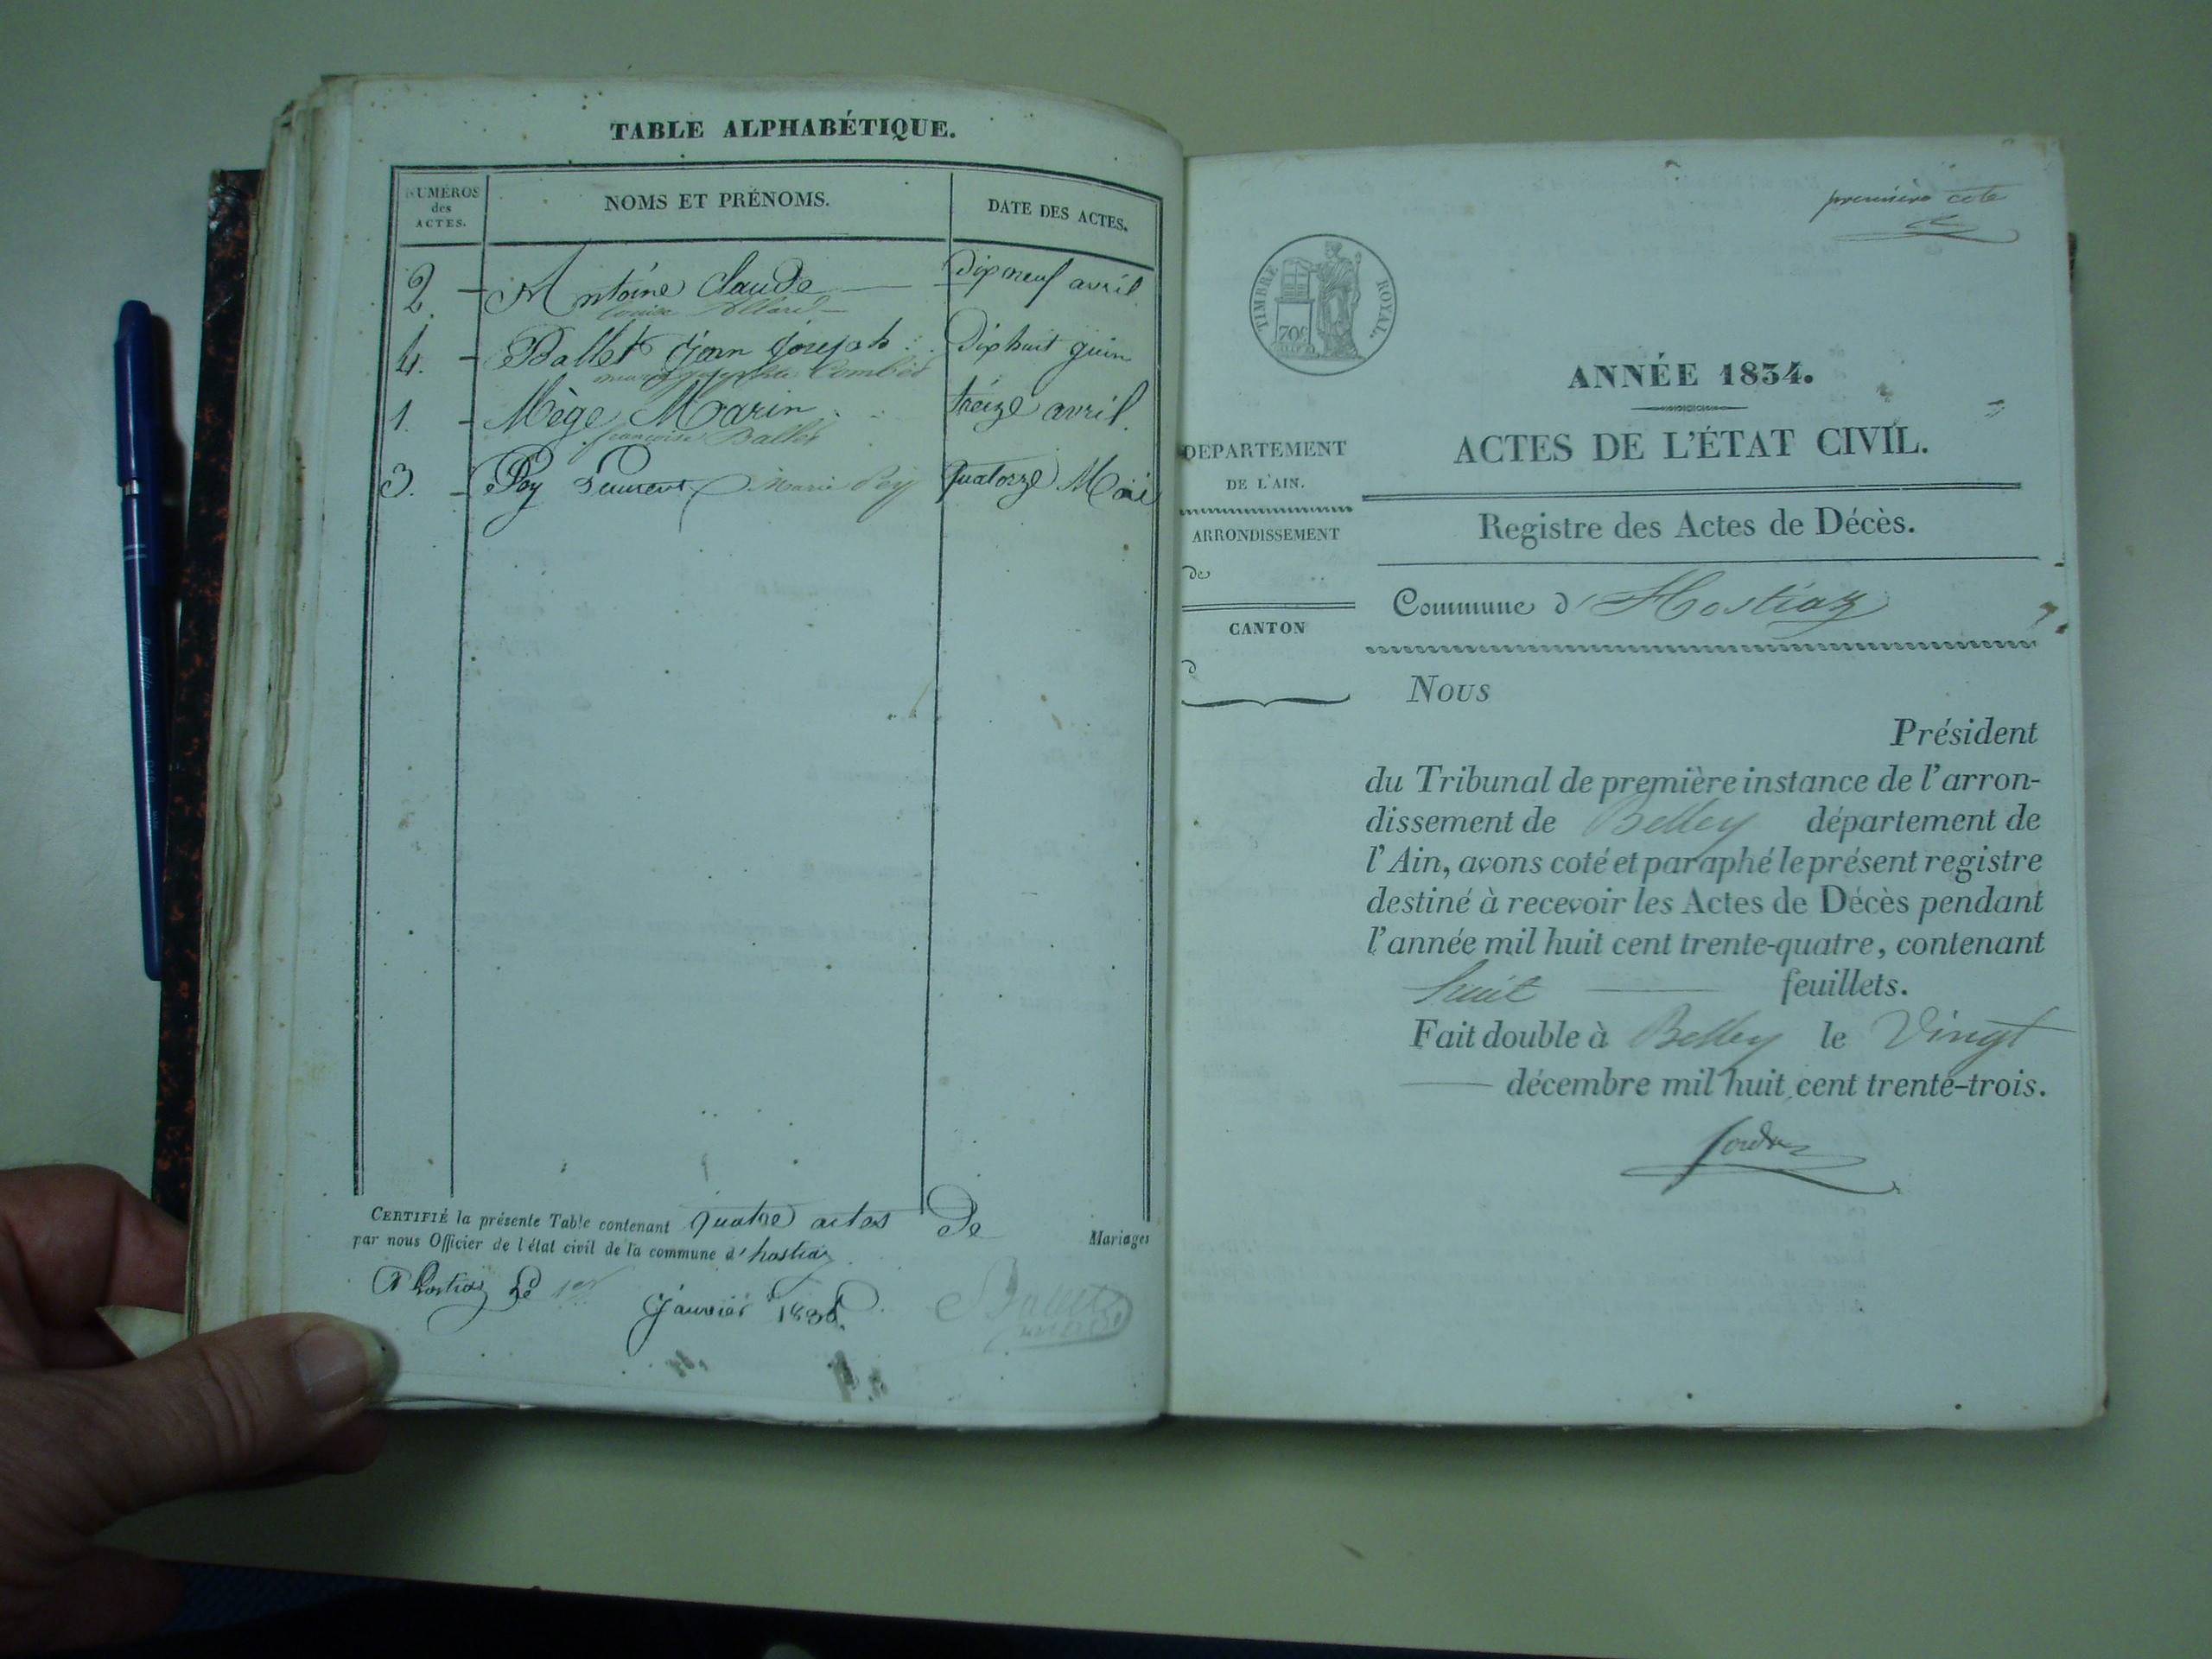 TABLE ALPHABÉTIQUE.
NUMÉROS des ACTES.
NOMS ET PRÉNOMS.
DATE DES ACTES.
2. Antoine Claude Dix neuf avril
Louise Allard
4. Ballet Jean Joseph Dix huit juin
marie
1. Mège Marin treize avril.
françoise Ballet
3. Poy Laurent Marie Poy quatorze Mai
CERTIFIÉ la présente Table contenant quatre actes de Mariages
par nous Officier de l'état civil de la commune d'hostiaz
A hostiaz Le 1er janvier
Ballet
première cote
TIMBRE ROYAL.
70c
ANNÉE 1834.
ACTES DE L'ÉTAT CIVIL.
DEPARTEMENT
DE L'AIN.
ARRONDISSEMENT
de
CANTON
d
Registre des Actes de Décès.
Commune d'Hostiaz
Nous
Président
du Tribunal de première instance de l'arron-
dissement de Belley département de
l'Ain, avons coté et paraphé le présent registre
destiné à recevoir les Actes de Décès pendant
l'année mil huit cent trente-quatre, contenant
huit feuillets.
Fait double à Belley le Vingt
décembre mil huit cent trente-trois.